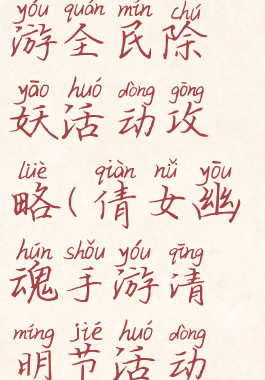 yóu quán mín chú
游全民除
yāo huó dòng gōng
妖活动攻
lüè qiàn nǚ yōu
略(倩女幽
hún shǒu yóu qīng
魂手游清
míng jié huó dòng
明节活动